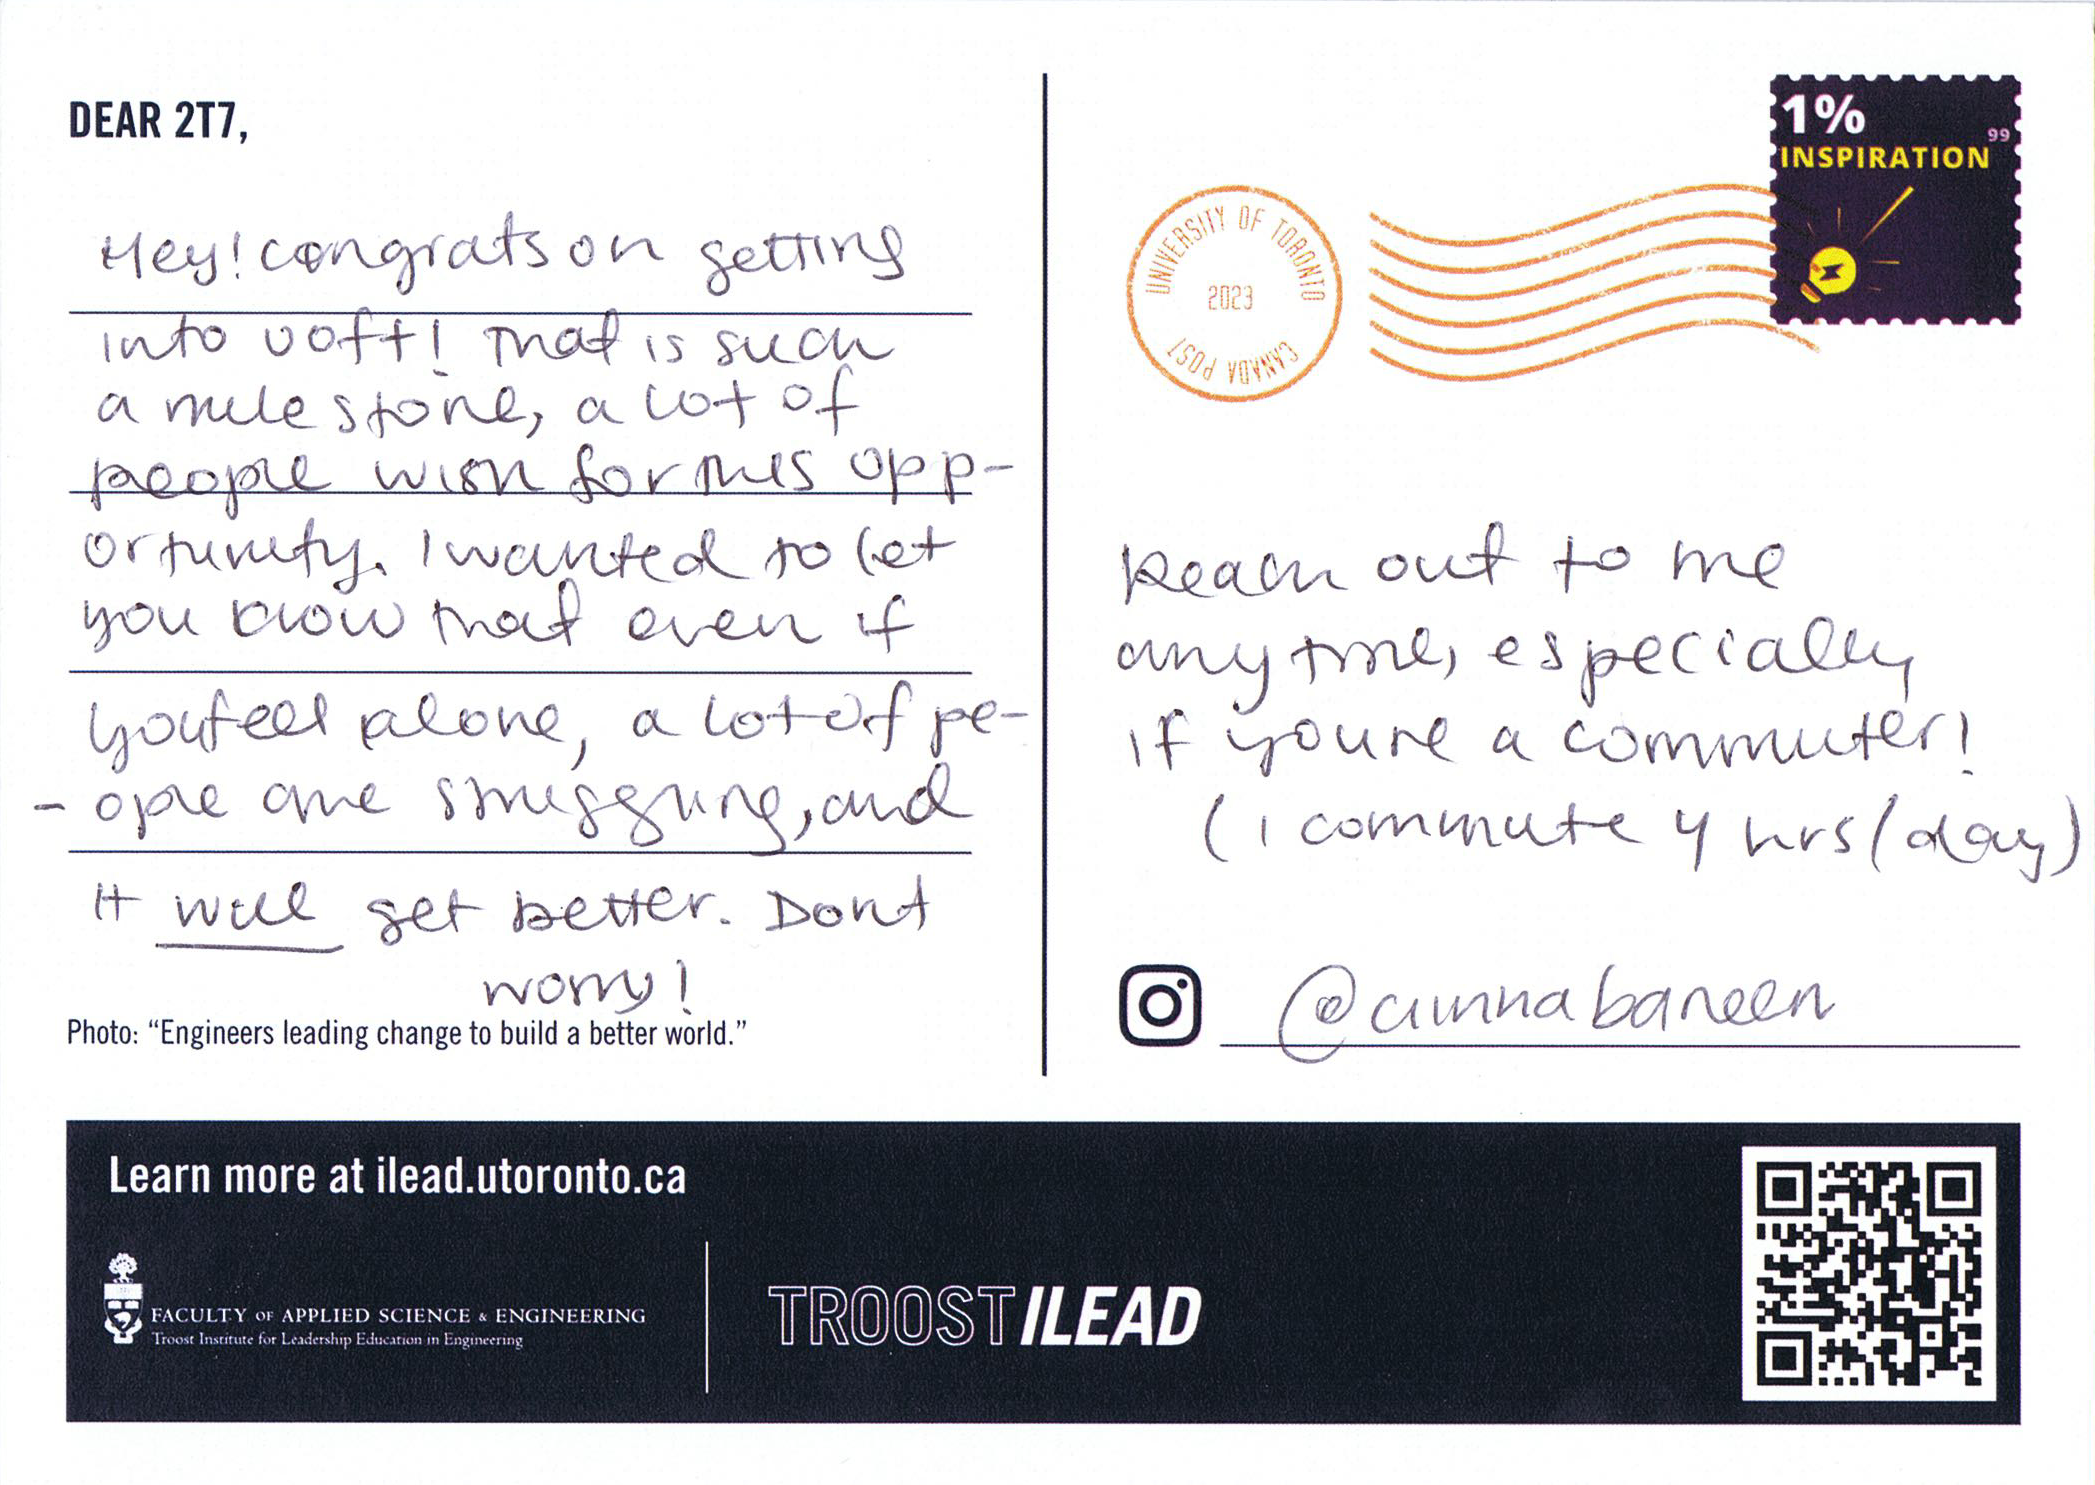 DEAR 2T7,
Hey! congrats on getting
into uoft! That is such
a milestone, a lot of
people wish for this opp-
ortunity. I wanted to let
you know that even if
you feel alone, a lot of pe-
- ople are struggling, and
It will get better. Dont
worry!
Photo: “Engineers leading change to build a better world.”
1%
99
INSPIRATION
UNIVERSITY OF TORONTO
2023
CANADA POST
Reach out to me
anytime, especially
if youre a commuter!
(i commute 4 hrs/day)
Learn more at ilead.utoronto.ca
FACULTY OF APPLIED SCIENCE & ENGINEERING
Troost Institute for Leadership Education in Engineering
TROOST ILEAD